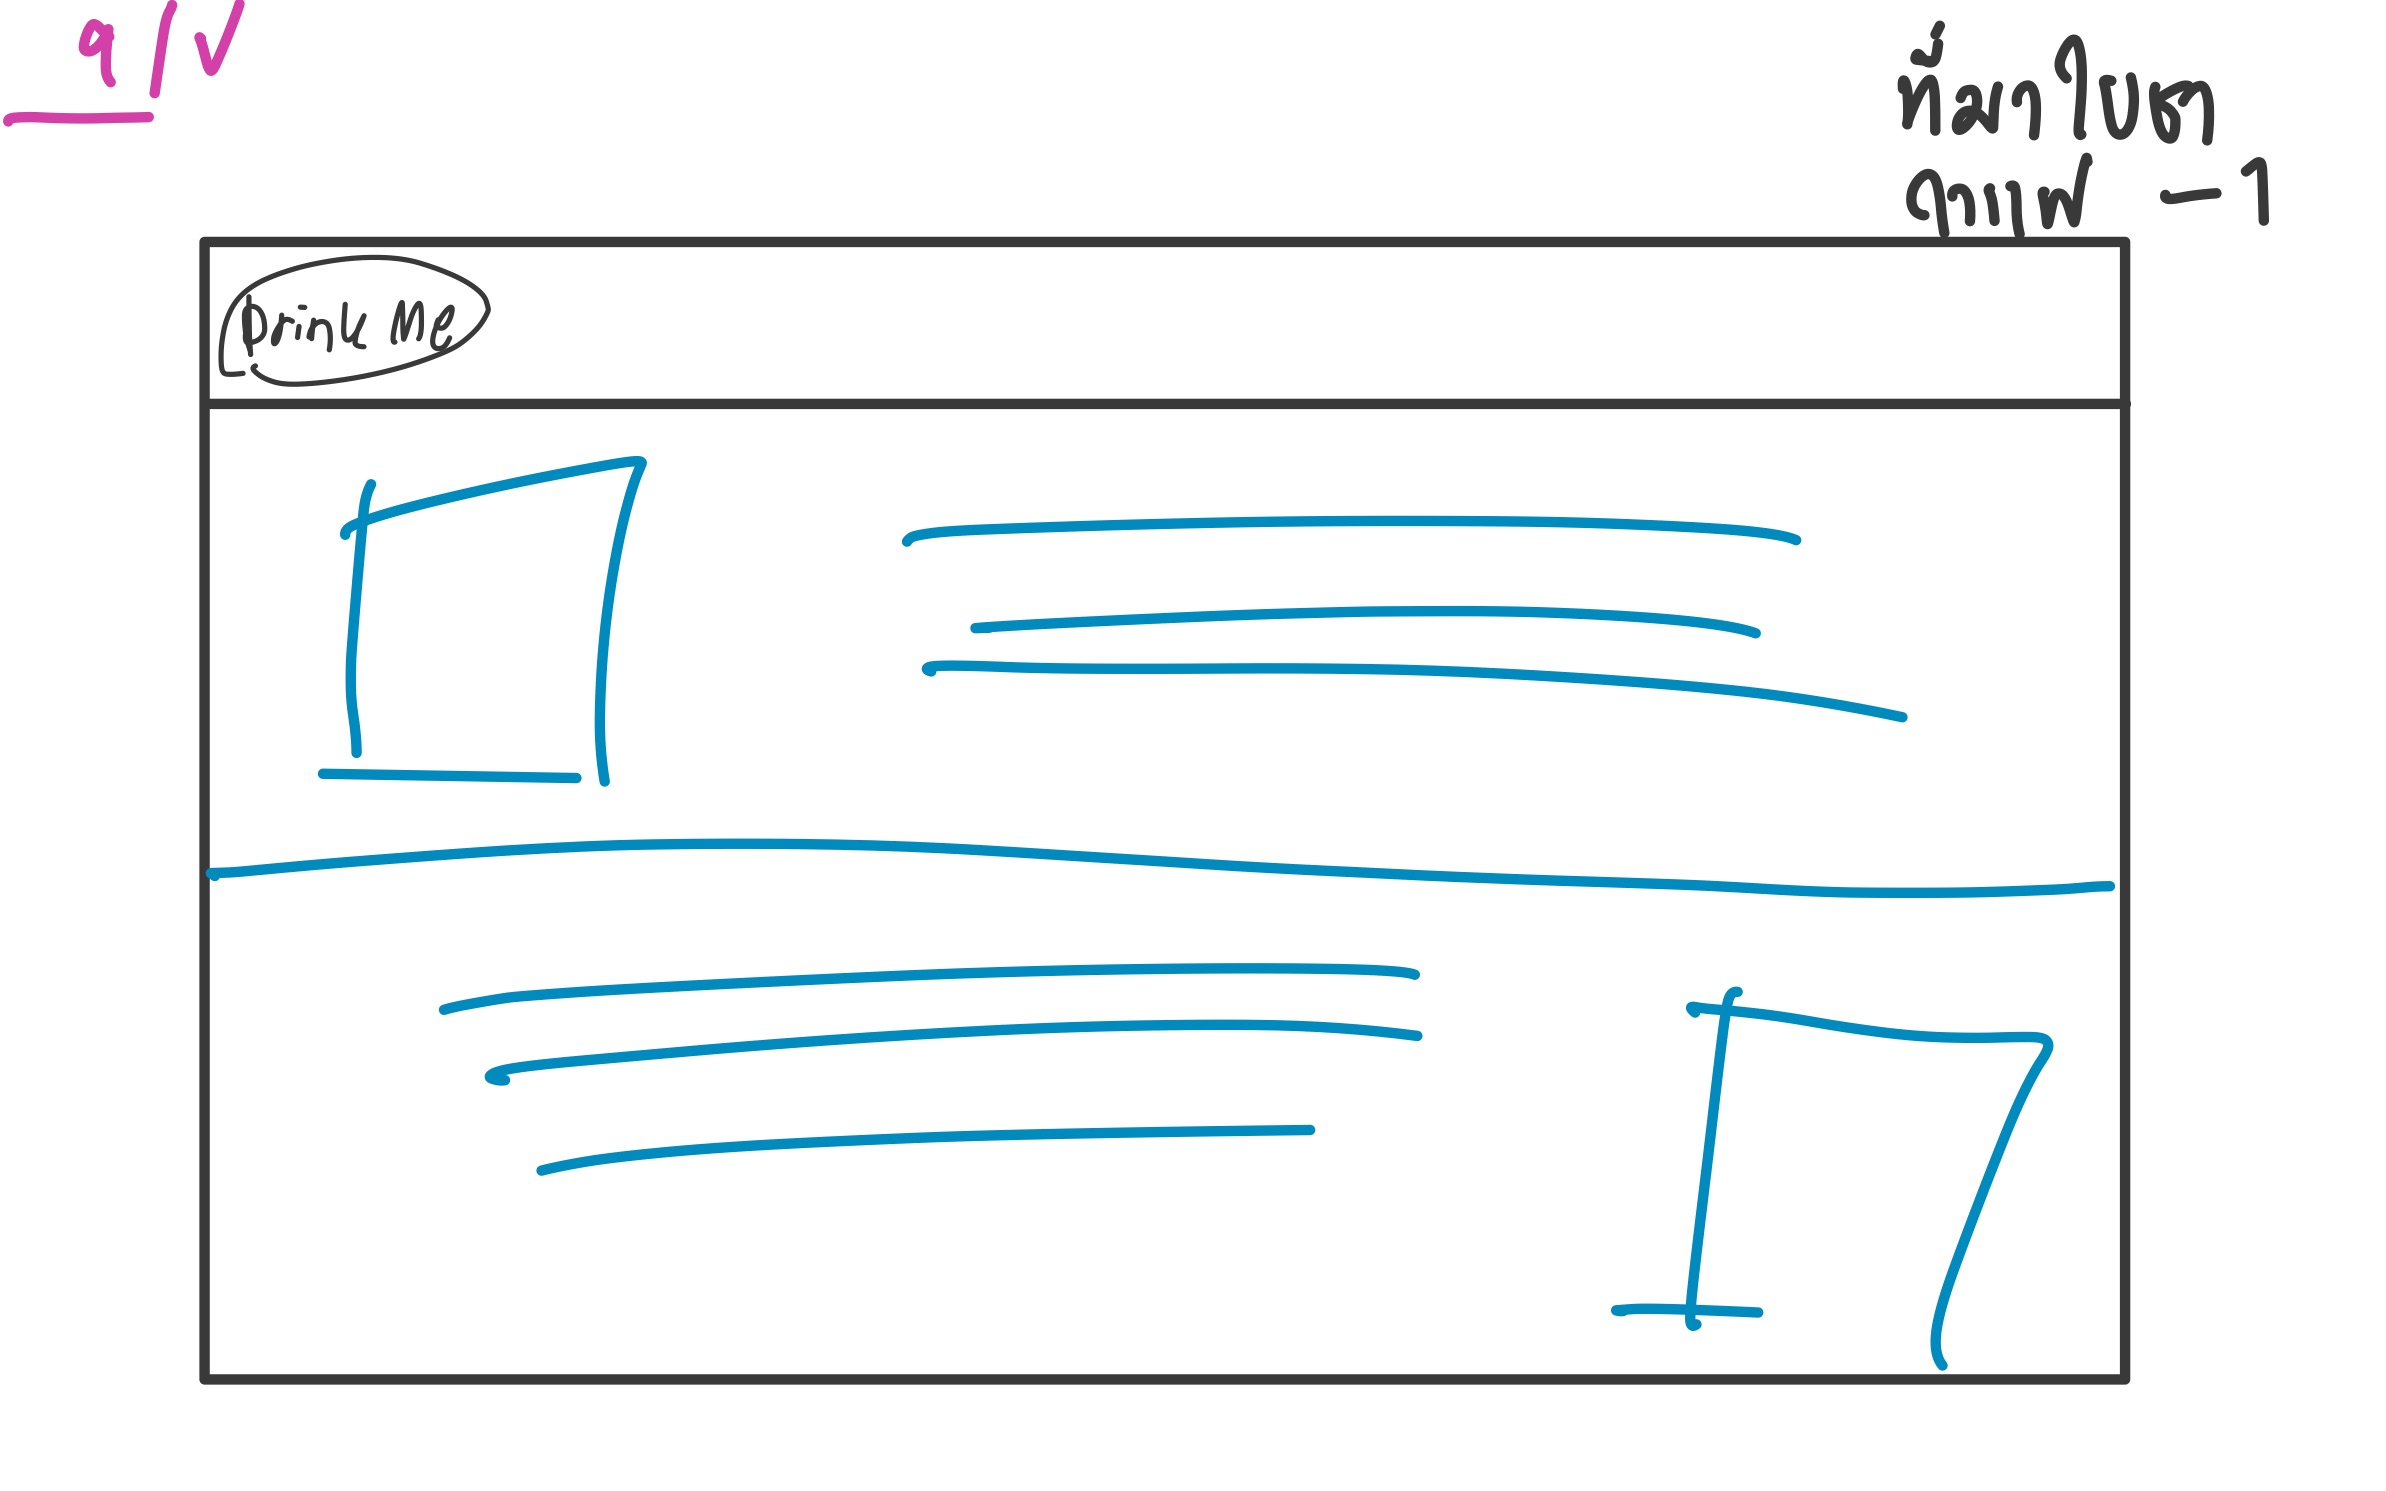 9/V
ที่มาใบชา
กาแฟ -1
Drink Me